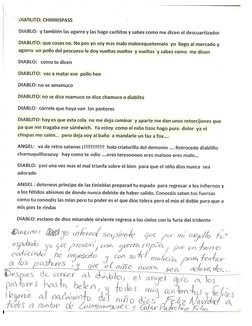 DIABLITO: CHIIIIIISPASS
DIABLO: y también las agarro y las hago cachitos y sabes como me dicen el descuartizador
DIABLITO: que cosas no. No pos yo soy mas malo malorequetemalo yo llego al mercado y
agarro un pollo del pescuezo le doy vueltas vueltas y vueltas y sabes como me dicen
DIABLO: como te dicen
DIABLITO: vas a matar ese pollo hee
DIABLO: no se dice amuerto
DIABLITO: no se dice mamuco se dice chamuco o diablito
DIABLO: córrele que haya van los pastores
DIABLITO: hay es que esta cola no me deja caminar y aparte me dan unos retorcijones que
pa que me tragaba ese sándwich. Ya estoy como el niño tizoc hago puro dolor ya ni
chispas me salen... pero deja voy al baño a mandarte un fax a fox....
ANGEL: va de retro satanas ¡!!!!!!!!!!!! hola criaturilla del demonio .... Retrocede diablillo
chamuquilloscucuy hay come te odio ....eres teresoooo eres maloso eres malo...
DIABLO: yasi una vez mas el mal triunfa sobre el bien para que el niño dios nunca sea
adorado
ANGEL : detenos príncipe de las tinieblas preparad tu espada para regresar a los infiernos y
a los fétidos abismos de donde nunca debiste de haber salido. Conocéis satan tus fuerzas
como tu conocéis las mias pero tu poder es el que dios tolera pero el mío el doble para que a
mis pies te rindas
DIABLO: esclavo de dios miserable sirviente regresa a los cielos con la furia del tridente
infernal serpiente que por mi orgullo fui
expulsado yo que provoqué una guerra impía, por un trono
codiciado he regresado y con sutil malicia para tentar
a los pastores, y que el niño nunca sea adorado...
Despues de vencer al diablo, el angel guió a los
pastores hasta belen, y todos muy contentos y felices
llegaron al nacimiento del niño dios. Feliz Navidad a
todos a nombre de